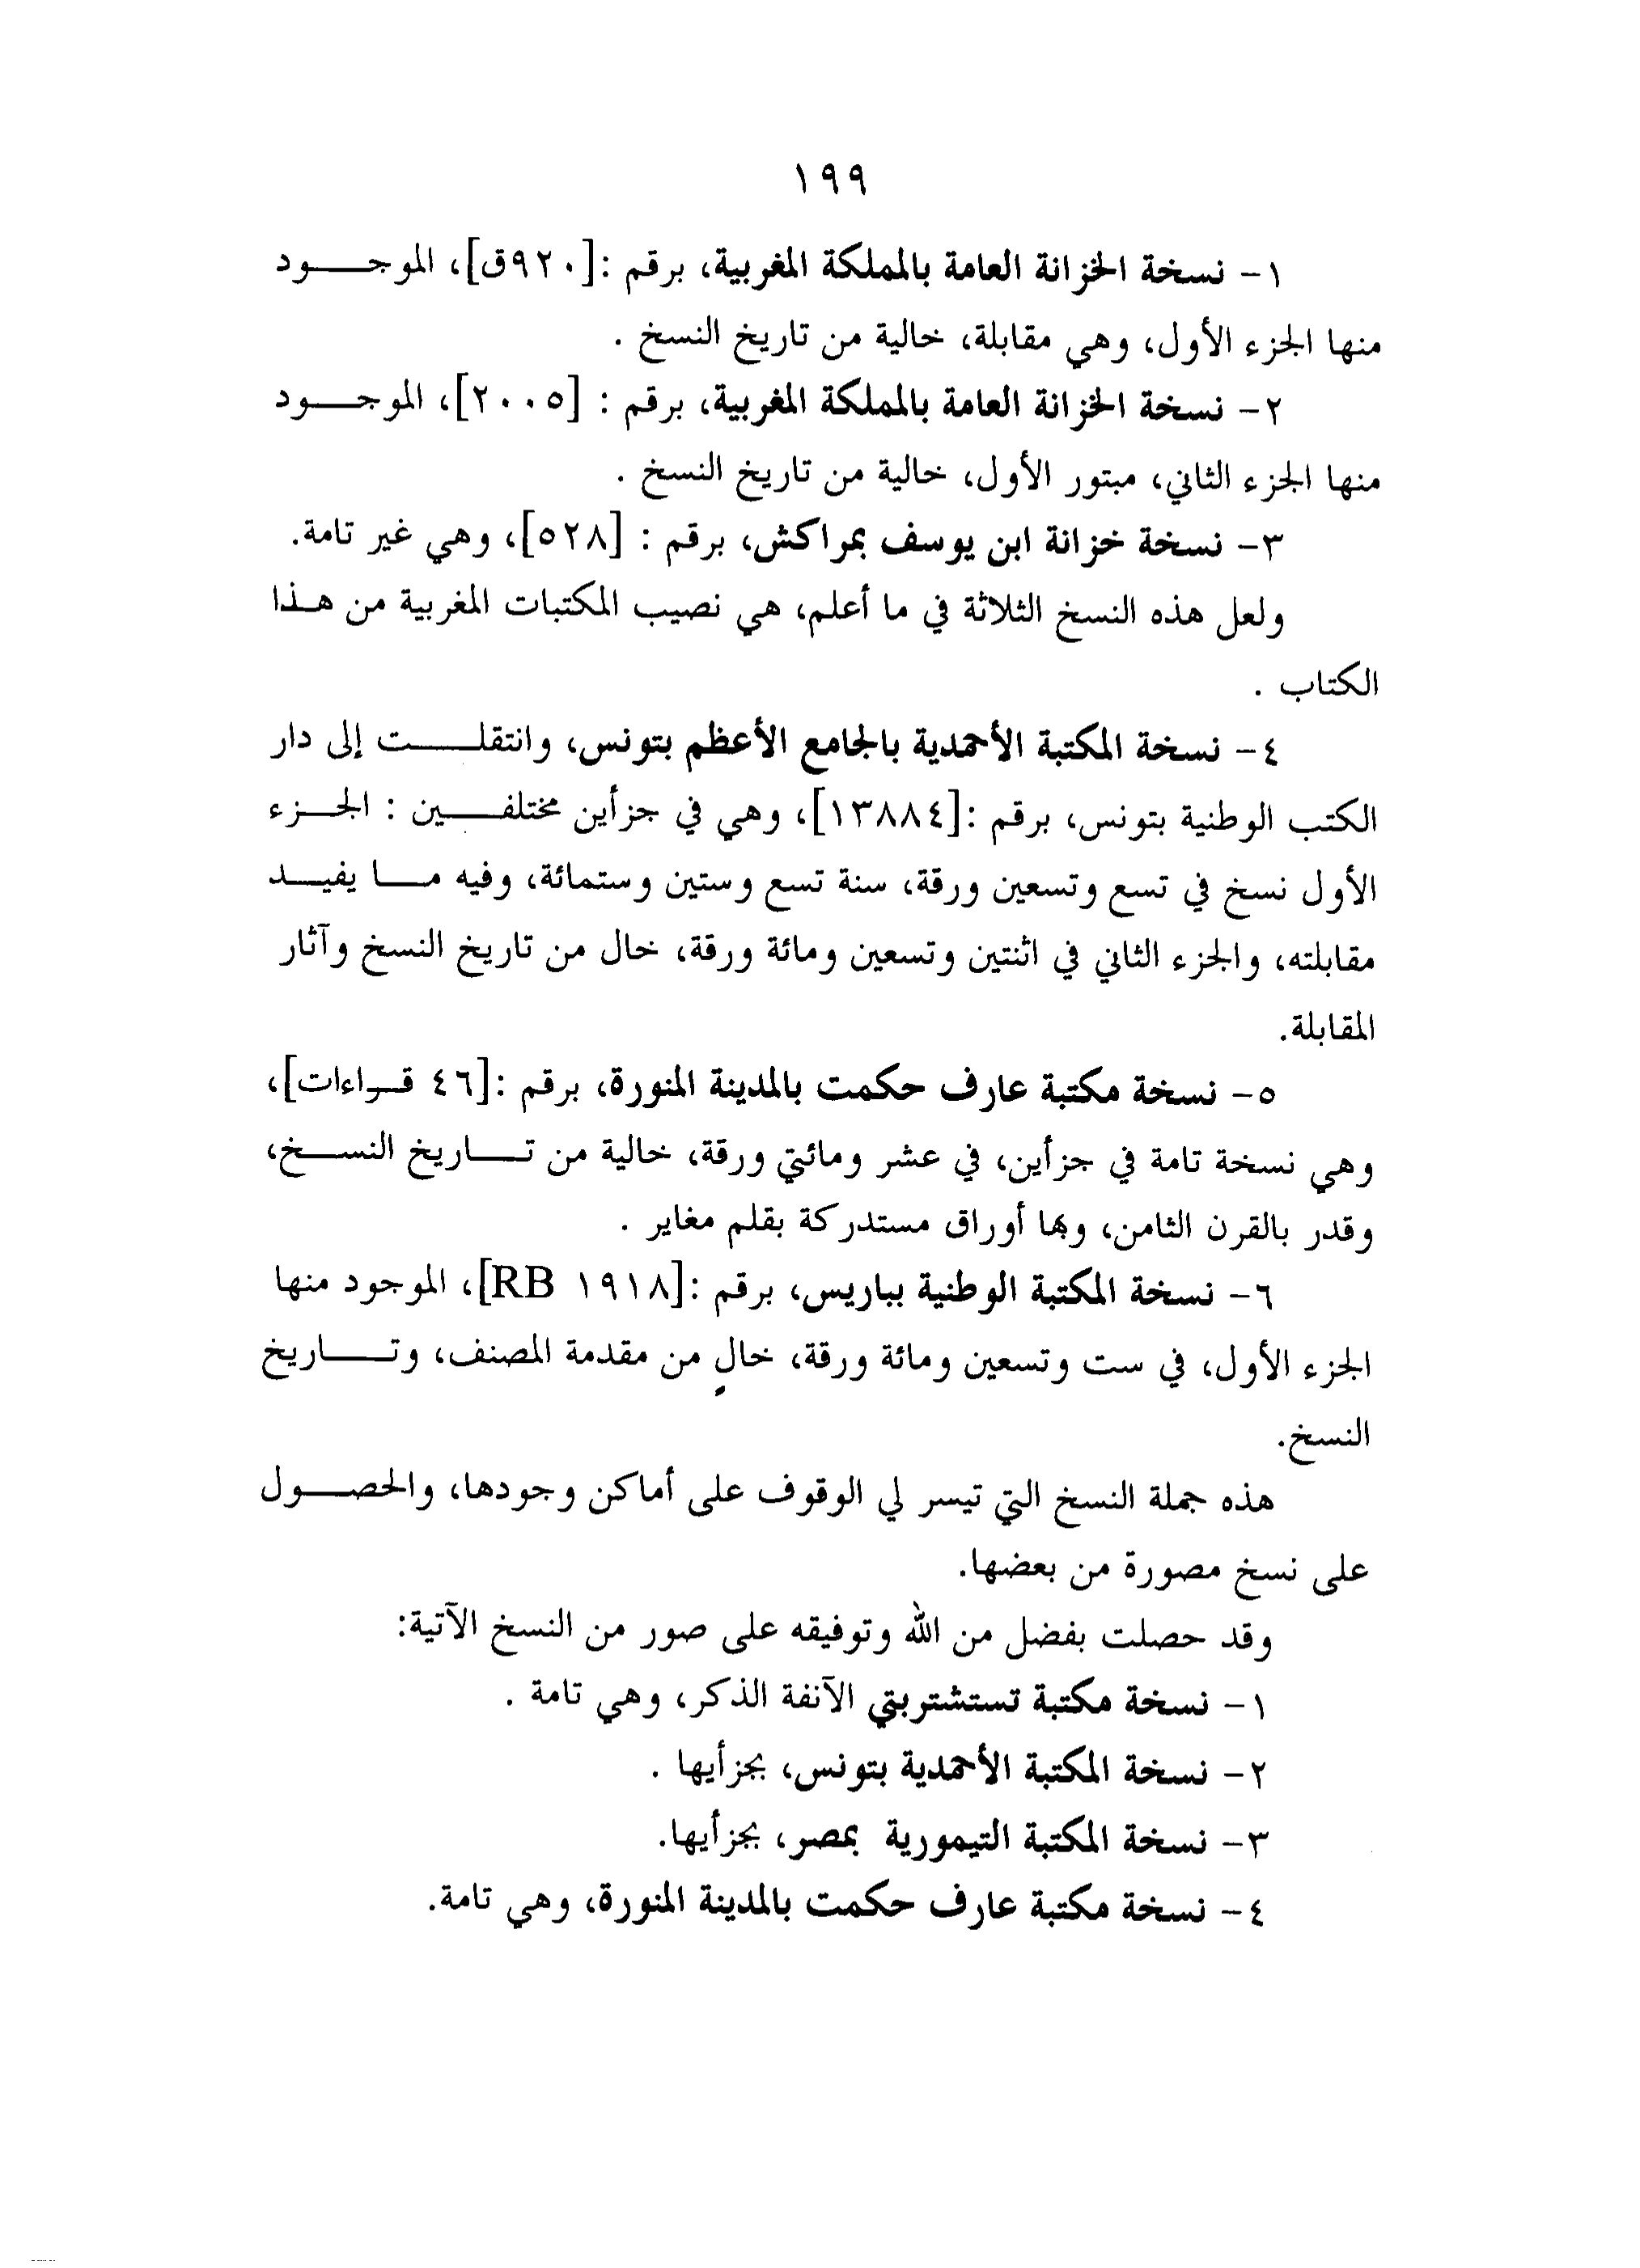 ١٩٩
١- نسخة الخزانة العامة بالمملكة المغربية، برقم :[٩٢٠ق]، الموجود
منها الجزء الأول، وهي مقابلة، خالية من تاريخ النسخ .
٢- نسخة الخزانة العامة بالمملكة المغربية، برقم : [٢٠٠٥]، الموجود
منها الجزء الثاني، مبتور الأول، خالية من تاريخ النسخ .
٣- نسخة خزانة ابن يوسف بمراكش، برقم : [٥٢٨]، وهي غير تامة.
ولعل هذه النسخ الثلاثة في ما أعلم، هي نصيب المكتبات المغربية من هذا
الكتاب .
٤- نسخة المكتبة الأحمدية بالجامع الأعظم بتونس، وانتقلت إلى دار
الكتب الوطنية بتونس، برقم :[١٣٨٨٤]، وهي في جزأين مختلفين : الجزء
الأول نسخ في تسع وتسعين ورقة، سنة تسع وستين وستمائة، وفيه ما يفيد
مقابلته، والجزء الثاني في اثنتين وتسعين ومائة ورقة، خال من تاريخ النسخ وآثار
المقابلة.
٥- نسخة مكتبة عارف حكمت بالمدينة المنورة، برقم :[٤٦ قراءات]،
وهي نسخة تامة في جزأين، في عشر ومائتي ورقة، خالية من تاريخ النسخ،
وقدر بالقرن الثامن، وبها أوراق مستدركة بقلم مغاير .
٦- نسخة المكتبة الوطنية بباريس، برقم :[RB ١٩١٨]، الموجود منها
الجزء الأول، في ست وتسعين ومائة ورقة، خالٍ من مقدمة المصنف، وتاريخ
النسخ.
هذه جملة النسخ التي تيسر لي الوقوف على أماكن وجودها، والحصول
على نسخ مصورة من بعضها.
وقد حصلت بفضل من الله وتوفيقه على صور من النسخ الآتية:
١- نسخة مكتبة تستشتربتي الآنفة الذكر، وهي تامة .
٢- نسخة المكتبة الأحمدية بتونس، بجزأيها .
٣- نسخة المكتبة التيمورية بمصر، بجزأيها.
٤- نسخة مكتبة عارف حكمت بالمدينة المنورة، وهي تامة.